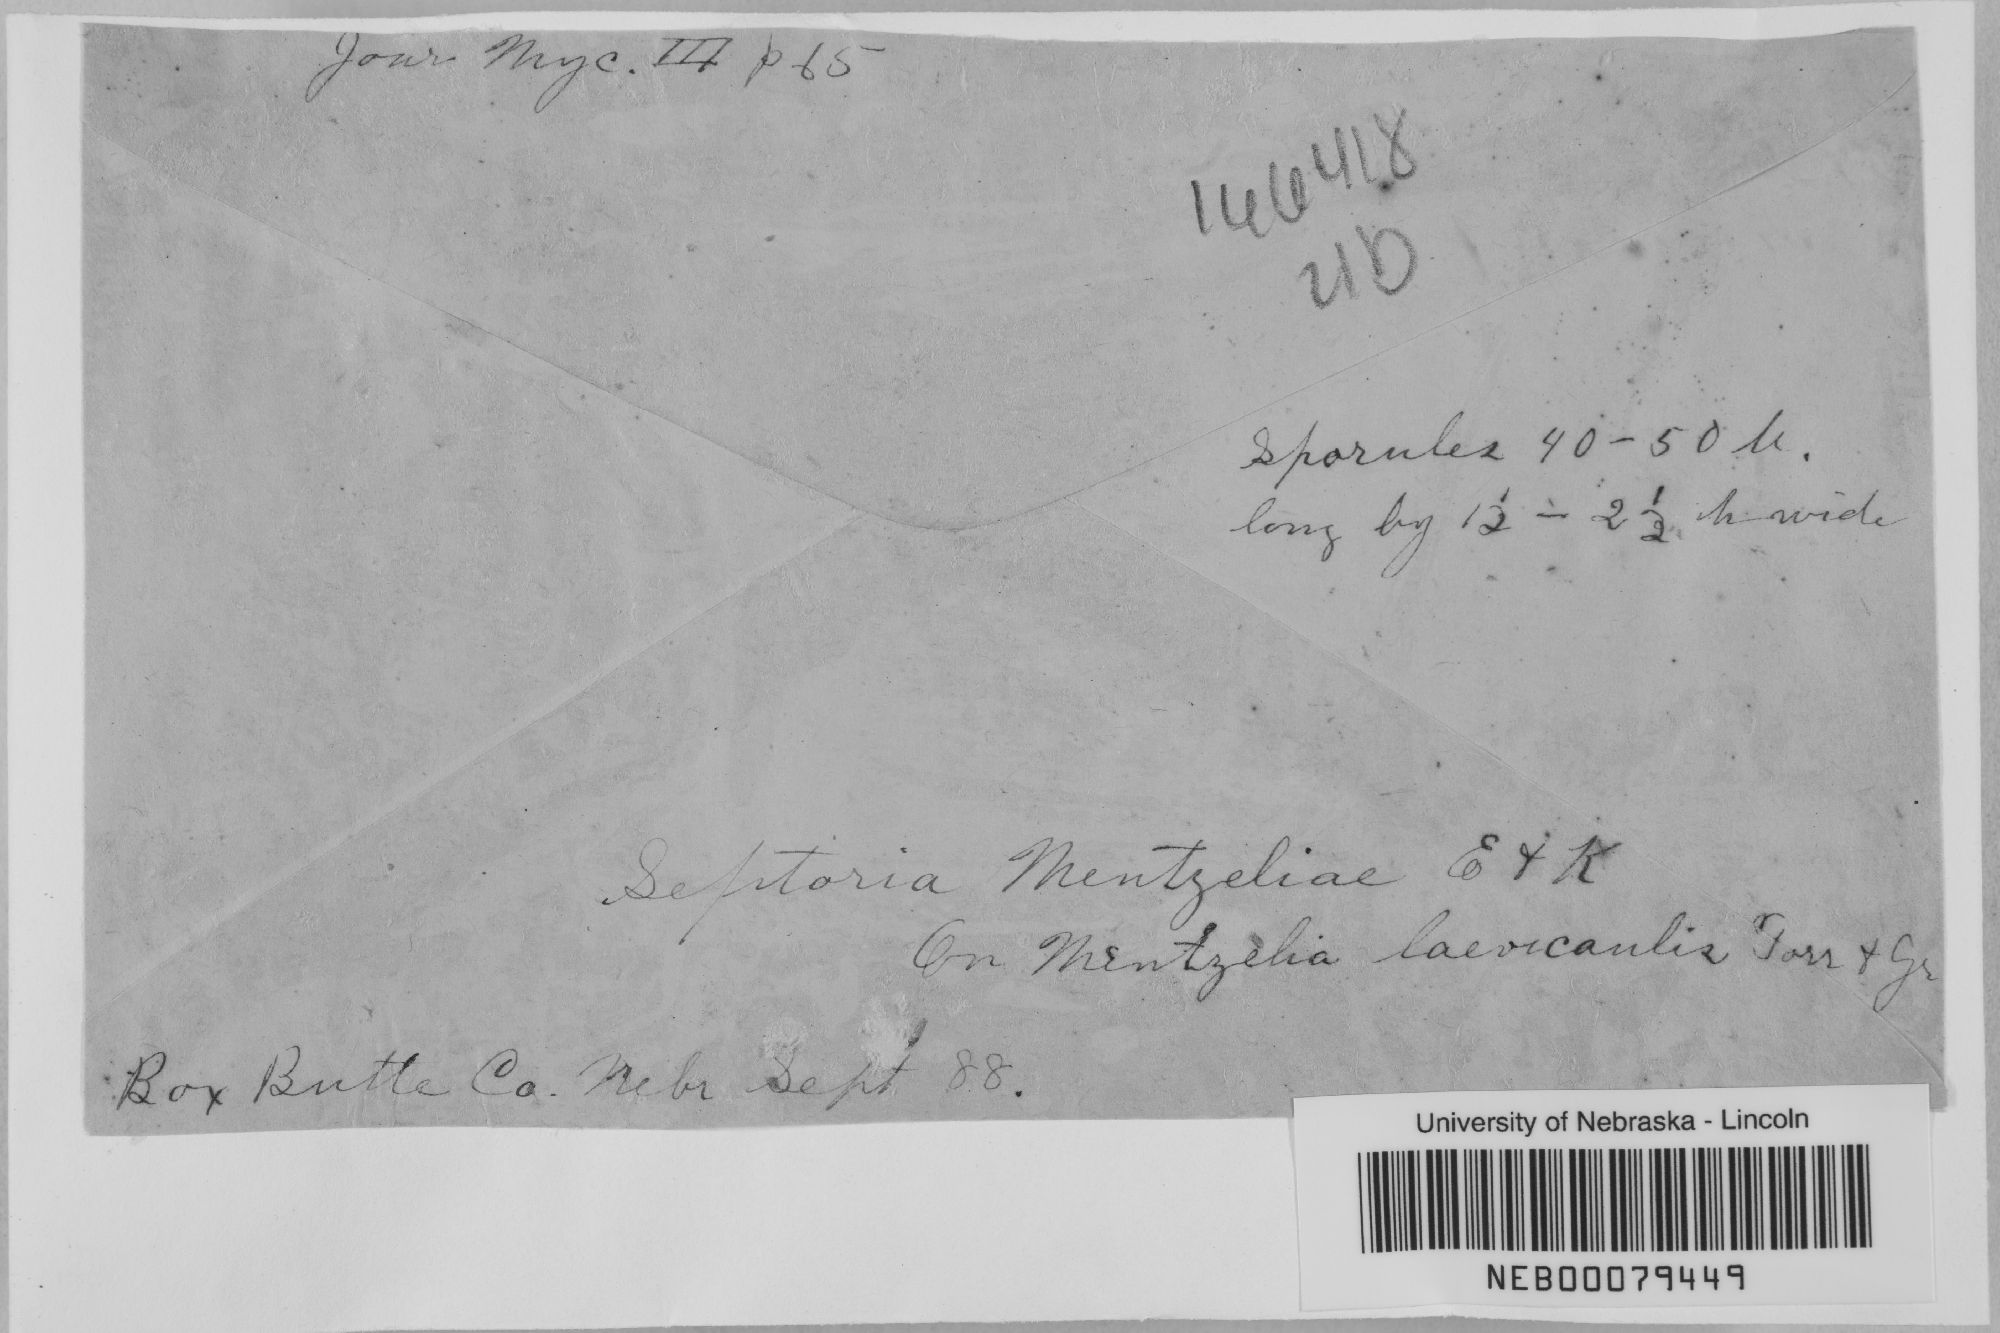 Jour Myc. III p 65
166418
21D
Sporules 40-50 µ.
long by 1½ - 2½ µ wide
Septoria Mentzeliae E & K
On Mentzelia laevicaulis Torr & Gr
Box Butte Co. Nebr Sept 88.
University of Nebraska - Lincoln
NEB00079449